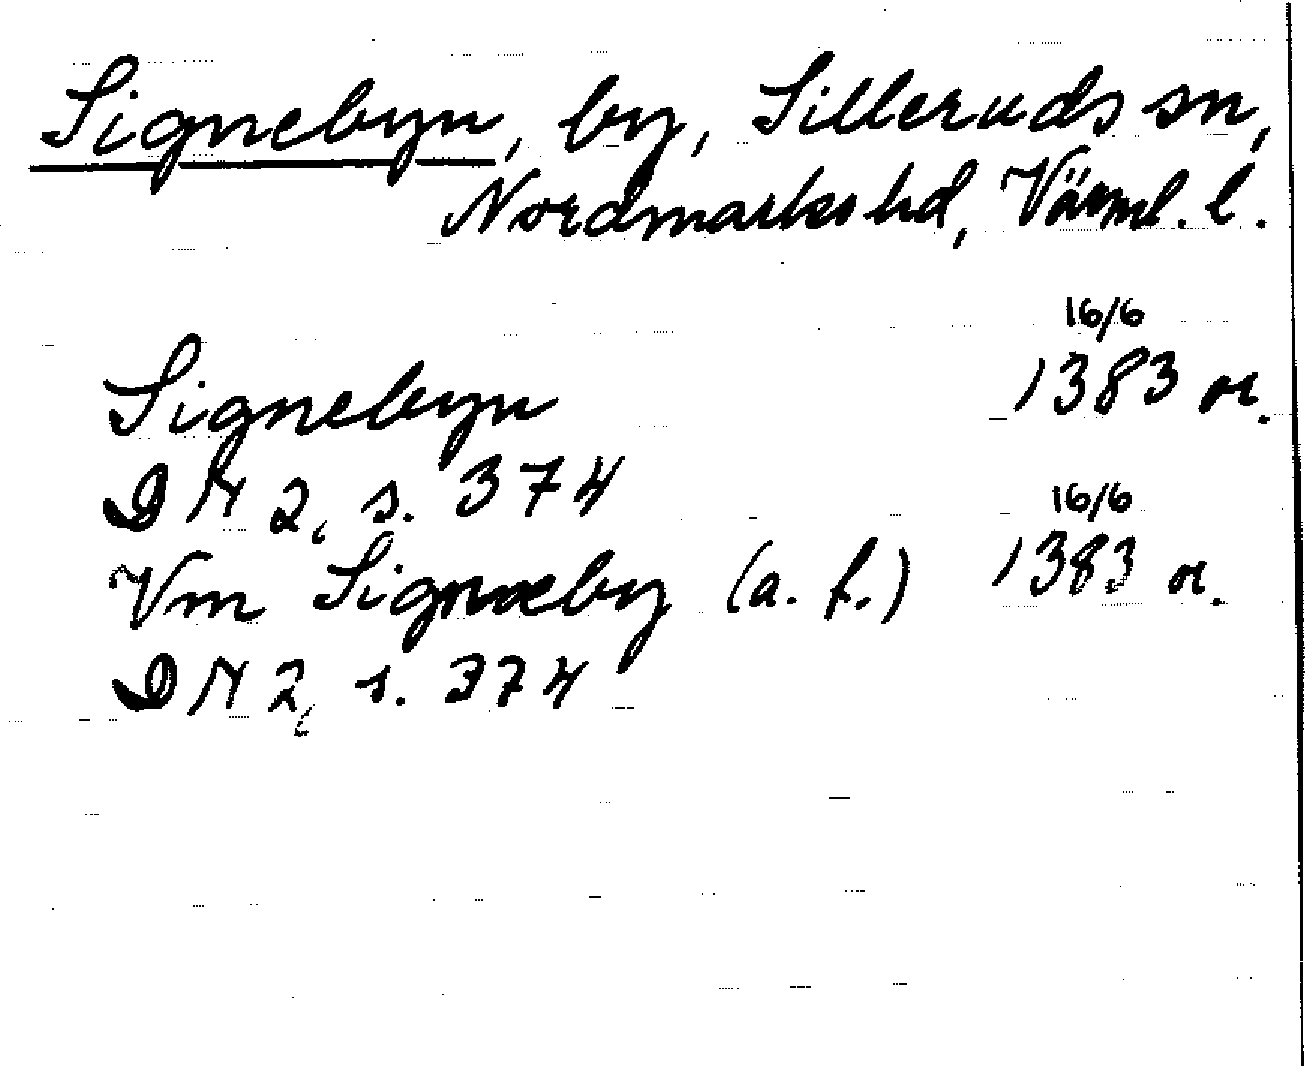 Signebyn, by, Silleruds sn,
Nordmarks hd, Värml. l.
16/6
Signebyn 1383 or.
DN 2, s. 374
16/6
Vm Signæby (a. f.) 1383 or.
DN 2, s. 374